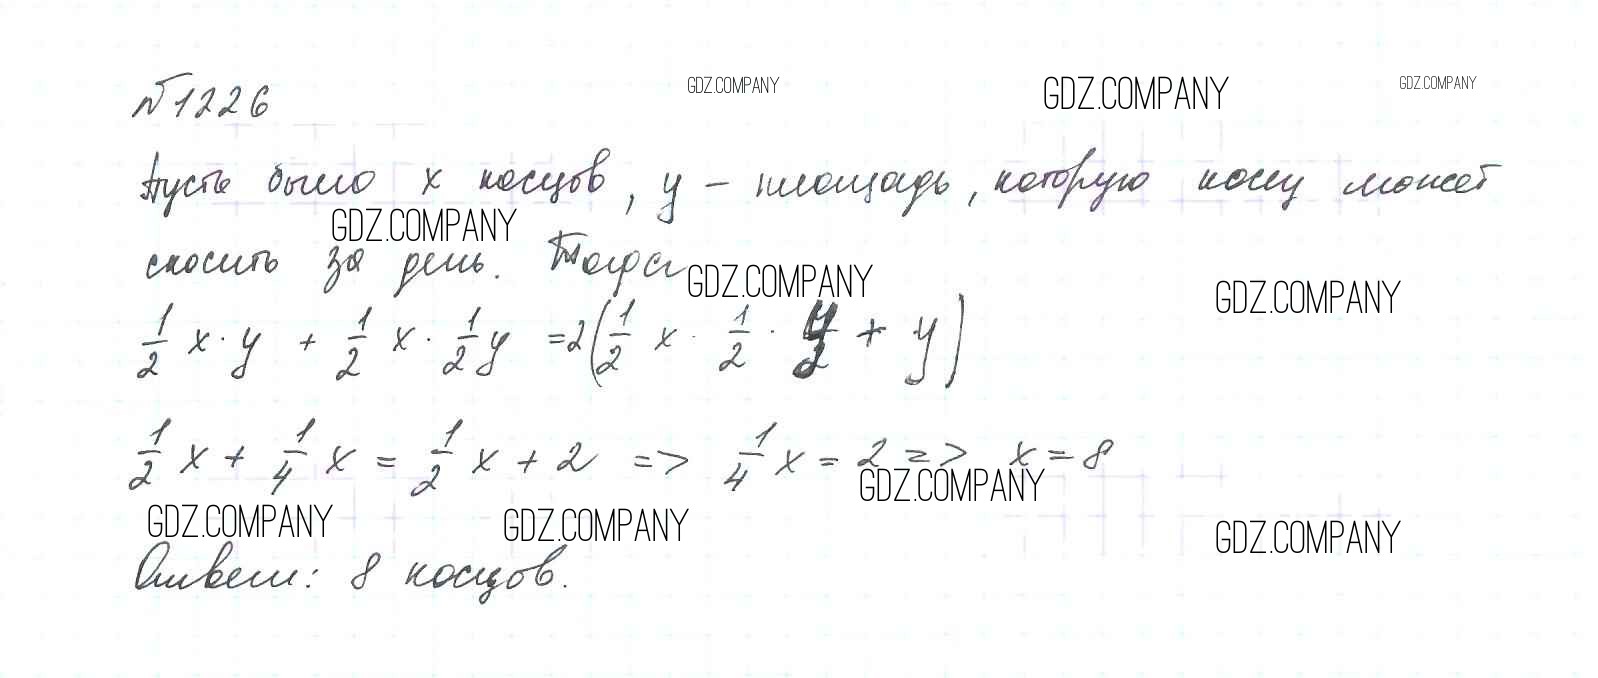 №1226
GDZ.COMPANY GDZ.COMPANY GDZ.COMPANY
Пусть было x косцов, y – площадь, которую косец может
GDZ.COMPANY
скосить за день. Тогда
GDZ.COMPANY GDZ.COMPANY
1/2 x · y + 1/2 x · 1/2 y = 2(1/2 x · 1/2 · y/2 + y)
1/2 x + 1/4 x = 1/2 x + 2 => 1/4 x = 2 => x = 8
GDZ.COMPANY
GDZ.COMPANY GDZ.COMPANY GDZ.COMPANY
Ответ: 8 косцов.